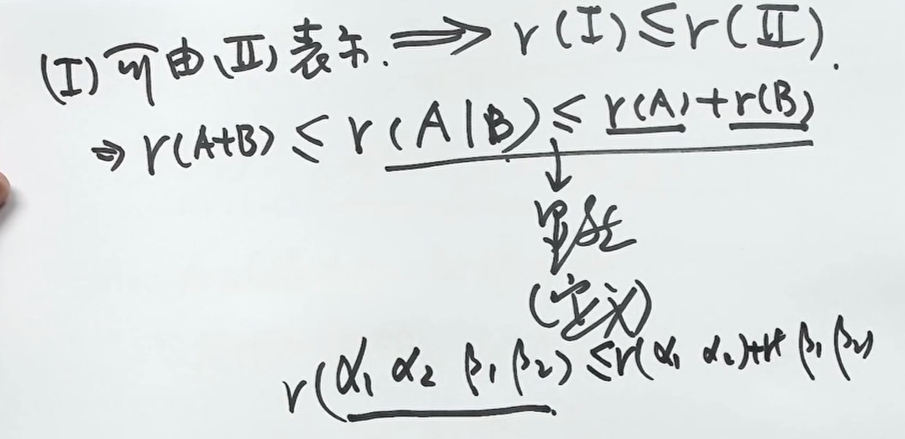 (I)可由(II)表示. ⟹ r(I)≤r(II).
⇒ r(A+B) ≤ r(A|B) ≤ r(A)+r(B)
↓
(定义)
r(α₁ α₂ β₁ β₂) ≤ r(α₁ α₂)+r β₁ β₂)